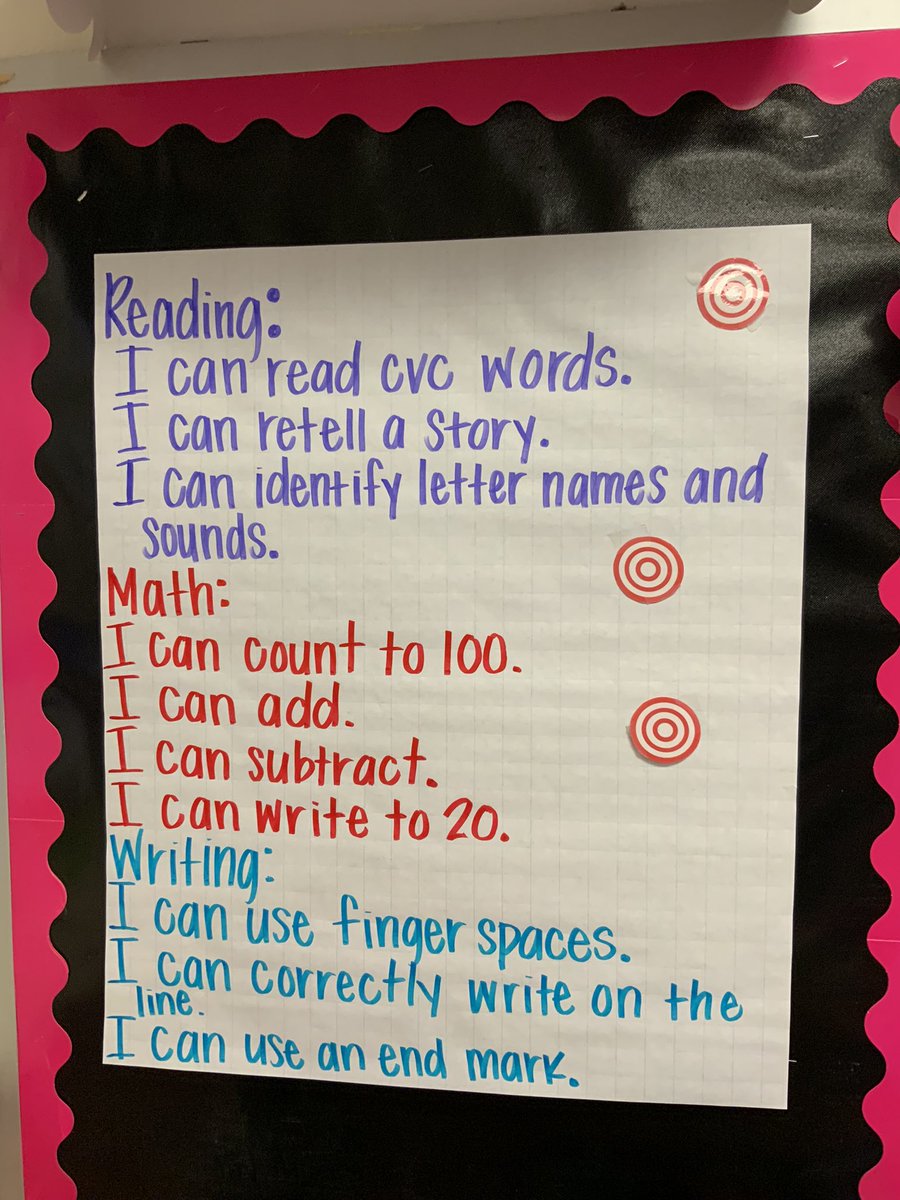 Reading:
I can read cvc words.
I can retell a story.
I can identify letter names and
sounds.
Math:
I can count to 100.
I can add.
I can subtract.
I can write to 20.
Writing:
I can use finger spaces.
I can correctly write on the
line.
I can use an end mark.